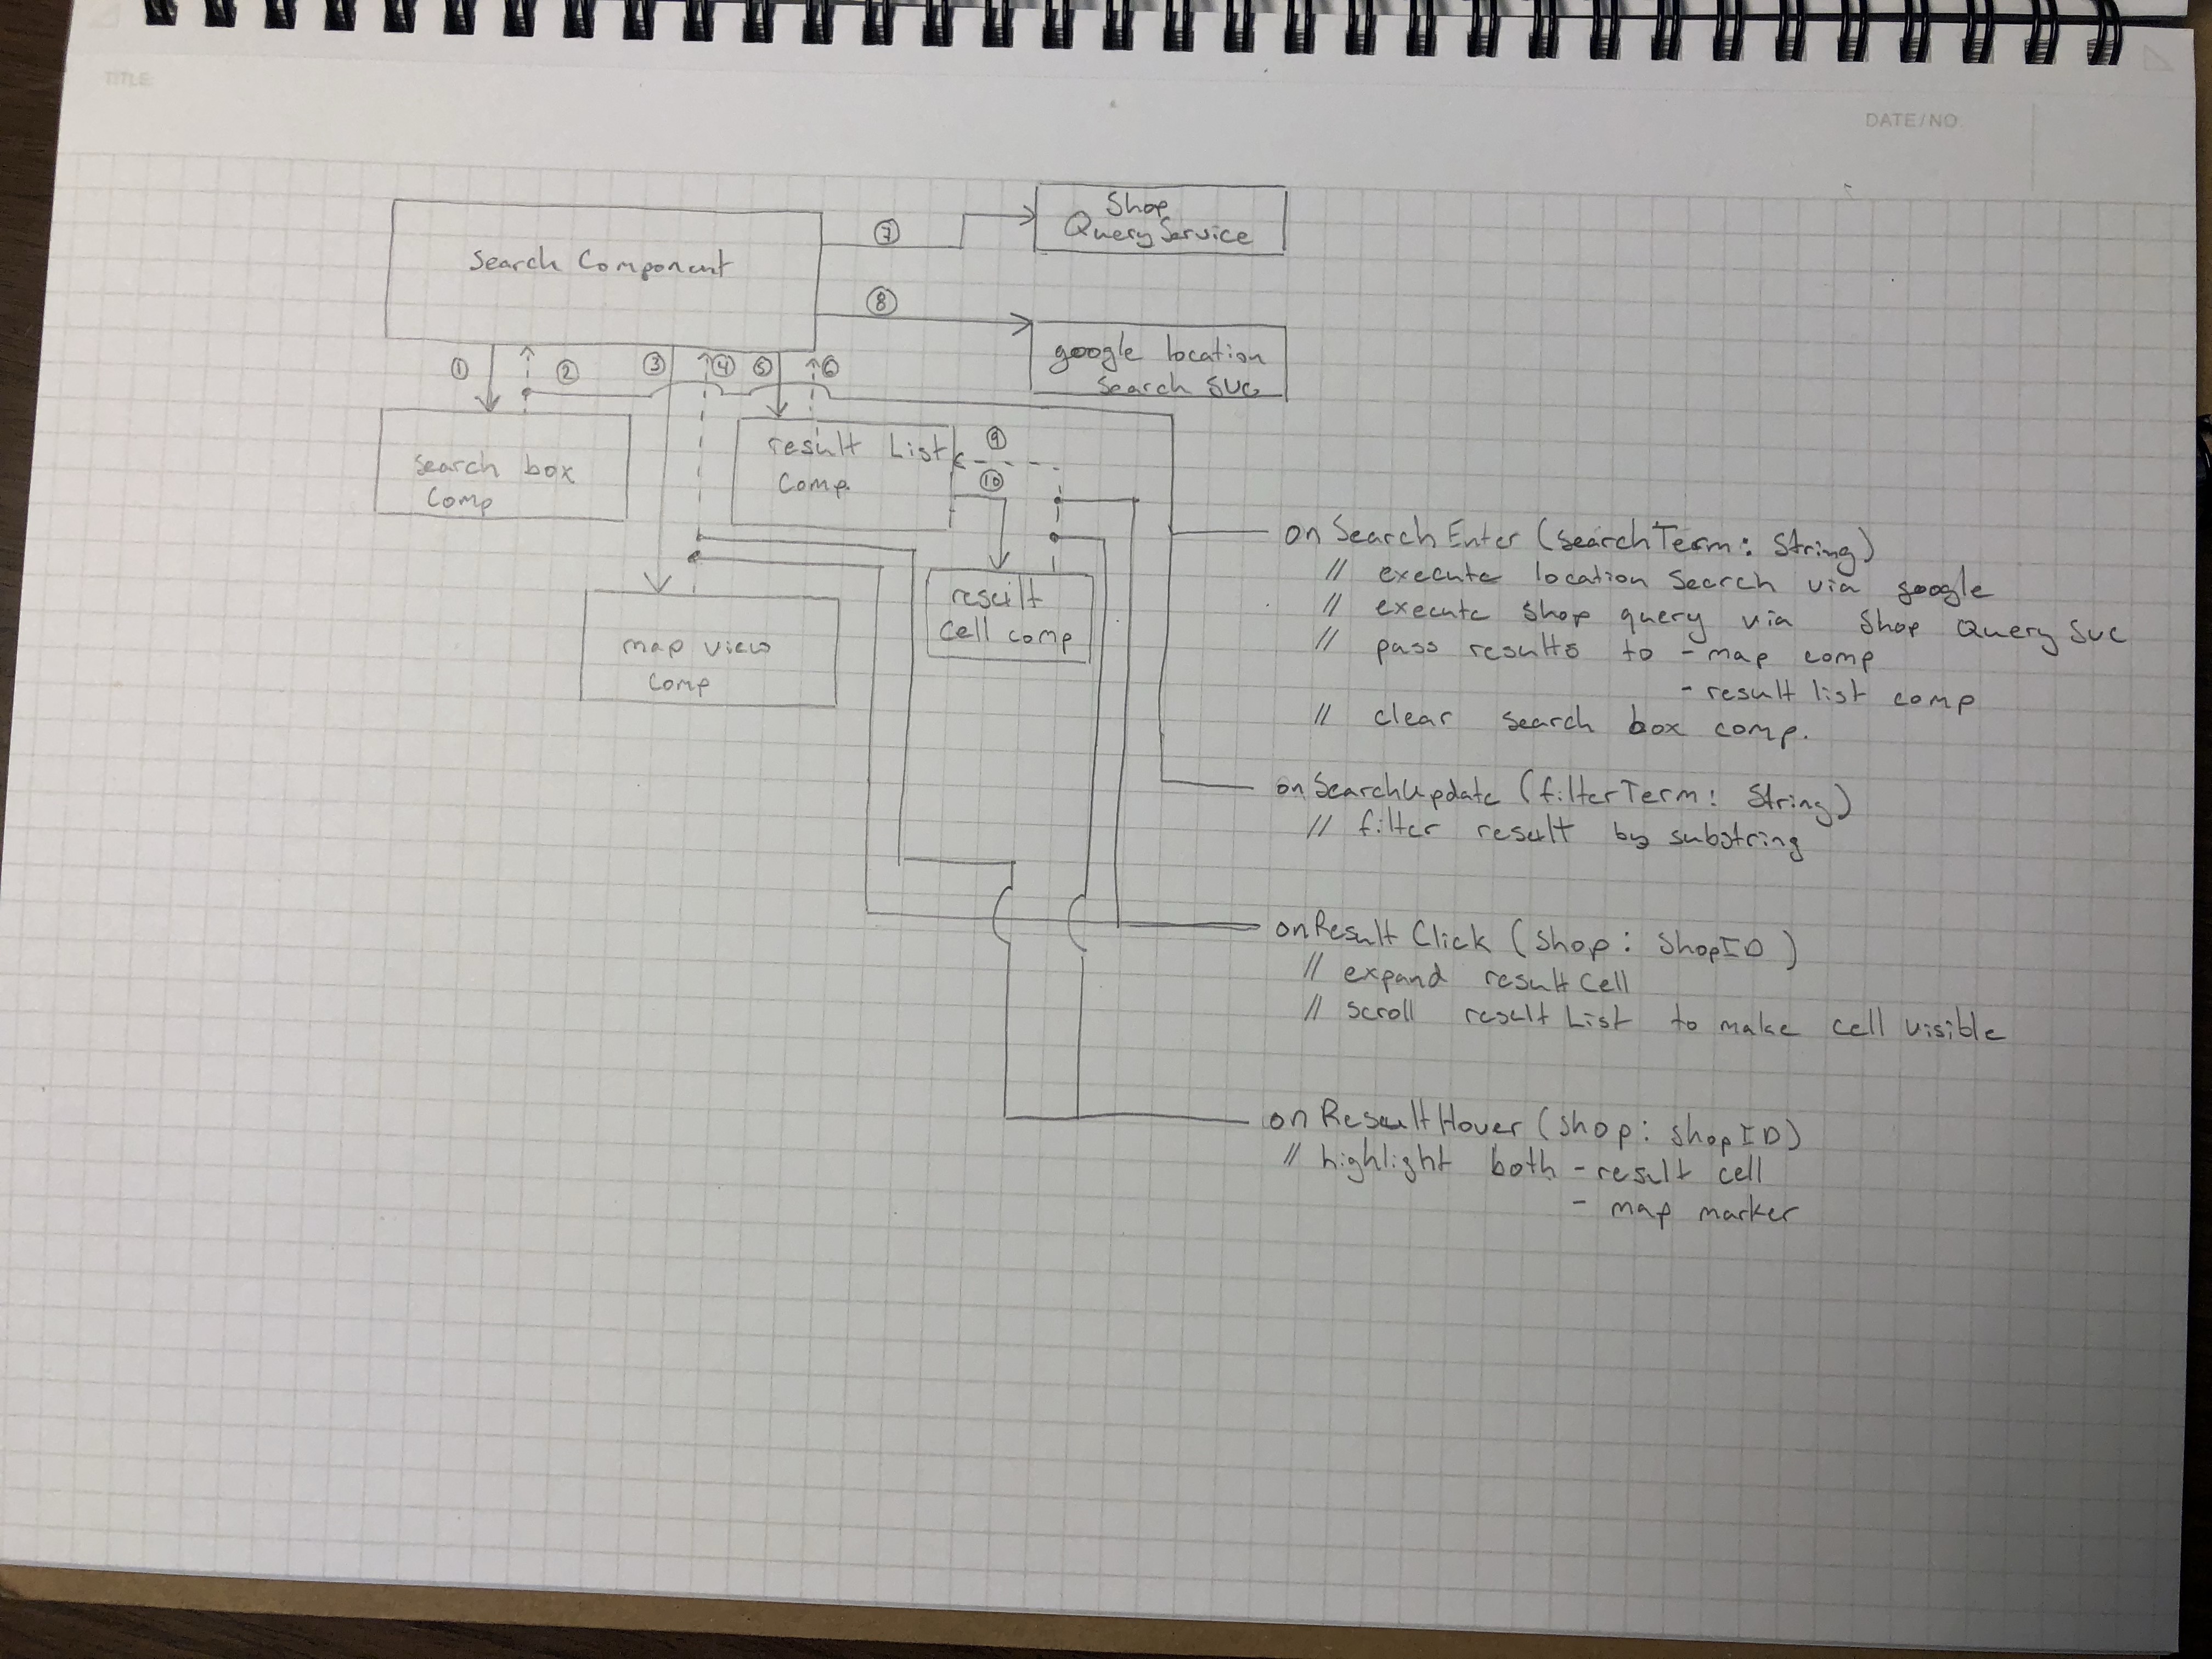 TITLE
DATE/NO.
Search Component
7
Shop
Query Service
8
google location
Search SVC
1
2
3
4
5
6
search box
Comp
result List
Comp.
9
10
map view
Comp
result
Cell comp
onSearchEnter (searchTerm: String)
// execute location search via google
// execute shop query via Shop Query Svc
// pass results to - map comp
- result list comp
// clear search box comp.
onSearchUpdate (filterTerm: String)
// filter result by substring
onResultClick (shop: ShopID)
// expand resultCell
// scroll resultList to make cell visible
onResultHover (shop: shopID)
// highlight both - result cell
- map marker